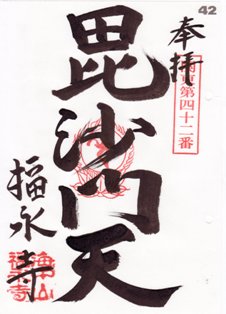 42
奉拝
第四十二番
毘沙門天
福永寺